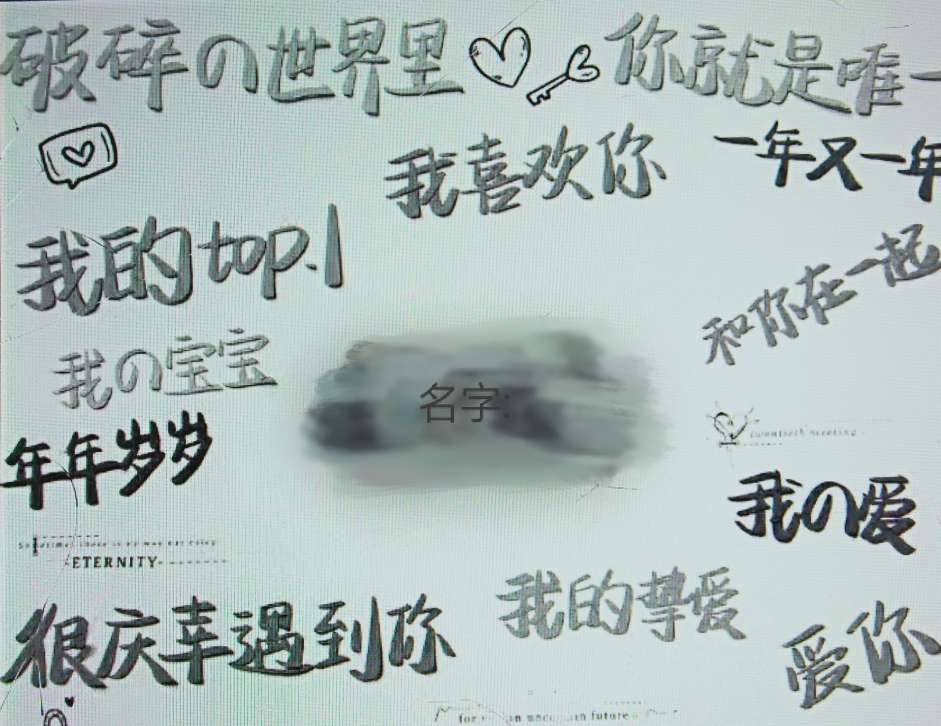 破碎の世界里
你就是唯一
我喜欢你
一年又一年
我的top.1
和你在一起
我の宝宝
名字:
年年岁岁
twentieth meeting
我の爱
ETERNITY
很庆幸遇到你
我的挚爱
爱你
for an uncertain future